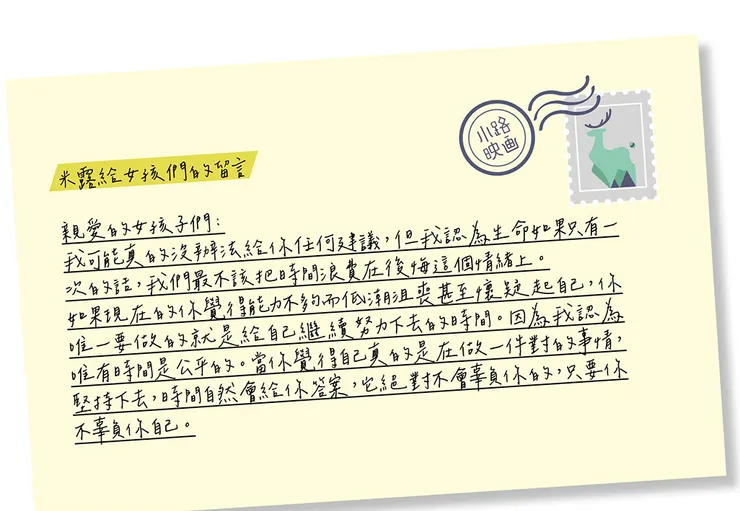 小路
映画
米露給女孩們的留言
親愛的女孩子們：
我可能真的沒辦法給你任何建議，但我認為生命如果只有一
次的話，我們最不該把時間浪費在後悔這個情緒上。
如果現在的你覺得能力不夠而低潮沮喪甚至懷疑起自己，你
唯一要做的就是給自己繼續努力下去的時間。因為我認為
唯有時間是公平的。當你覺得自己真的是在做一件對的事情，
堅持下去，時間自然會給你答案，它絕對不會辜負你的，只要你
不辜負你自己。